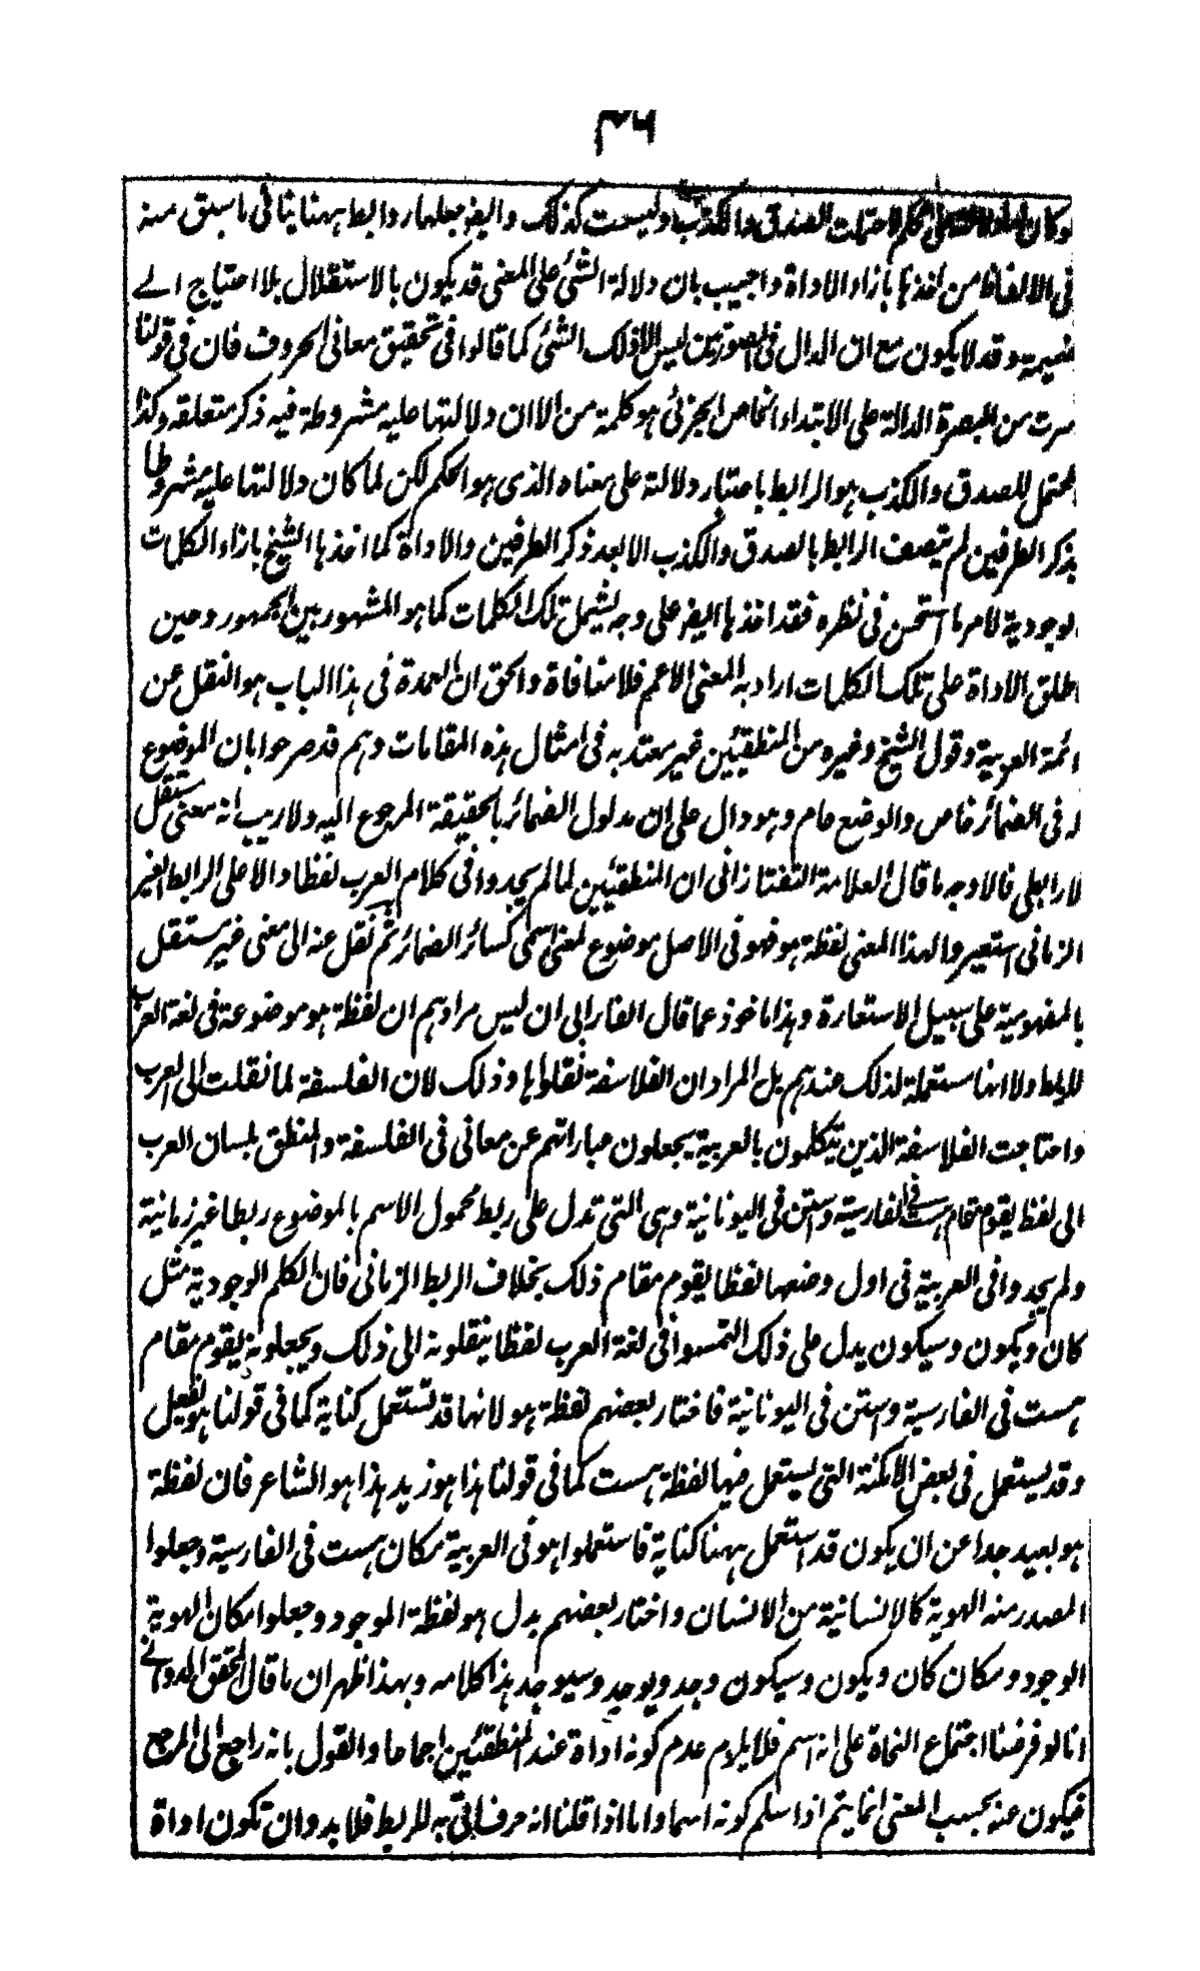 ٣٦
لو كان دلالتها على الحكم لاحتملت الصدق والكذب وليست كذلك وايضا جعلها روابط ههنا ينافى ما سبق منه
فى الالفاظ من اخذها بازاء الاداة واجيب بان دلالة الشئ على المعنى قد يكون بالاستقلال بلا احتياج الى
ضميمة وقد لا يكون مع ان الدال فى الصورتين ليس الا ذلك الشئ كما قالوا فى تحقيق معانى الحروف فان فى قولنا
سرت من البصرة الدالة على الابتداء الخاص الجزئى هو كلمة من الا ان دلالتها عليه مشروطة فيه ذكر متعلقه وكذا
المحتمل للصدق والكذب هو الرابط باعتبار دلالته على معناه الذى هو الحكم لكن لما كان دلالتها عليه مشروطا
بذكر الطرفين لم يتصف الرابط بالصدق والكذب الا بعد ذكر الطرفين والاداة كما اخذها الشيخ بازاء الكلمات
الوجودية لامر ما استحسن فى نظره فقد اخذها ايضا على وجه يشمل تلك الكلمات كما هو المشهور بين الجمهور وحين
اطلق الاداة على تلك الكلمات اراد به المعنى الاعم فلا منافاة والحق ان العمدة فى هذا الباب هو النقل عن
ائمة العربية وقول الشيخ وغيره من المنطقيين غير معتد به فى امثال هذه المقامات وهم قد صرحوا بان الموضوع
له فى الضمائر خاص والوضع عام وهو دال على ان مدلول الضمائر بالحقيقة المرجوع اليه ولا ريب انه معنى مستقل
لا رابطى فالاوجه ما قال العلامة التفتازانى ان المنطقيين لما لم يجدوا فى كلام العرب لفظا دالا على الرابط الغير
الزمانى استعير والهذا المعنى لفظة هو فهو فى الاصل موضوع لمعنى اسمى كسائر الضمائر ثم نقل عنه الى معنى غير مستقل
بالمفهومية على سبيل الاستعارة وهذا ماخوذ عما قال الفارابى ان ليس مرادهم ان لفظة هو موضوعة فى لغة العرب
للربط ولا انها مستعملة لذلك عندهم بل المراد ان الفلاسفة نقلوها وذلك لان الفلسفة لما نقلت الى العرب
واحتاجت الفلاسفة الذين يتكلمون بالعربية يجعلون عباراتهم عن معانى فى الفلسفة والمنطق بلسان العرب
الى لفظ يقوم مقام هست فى الفارسية واستن فى اليونانية وهى التى تدل على ربط محمول الاسم بالموضوع ربطا غير زمانية
ولم يجدوا فى العربية فى اول وضعها لفظا يقوم مقام ذلك بخلاف الربط الزمانى فان الكلم الوجودية مثل
كان ويكون وسيكون يدل على ذلك التمسوا فى لغة العرب لفظا ينقلونه الى ذلك ويجعلونه يقوم مقام
هست فى الفارسية واستن فى اليونانية فاختار بعضهم لفظة هو لانها قد تستعمل كناية كما فى قولنا هو يفعل
وقد يستعمل فى بعض الامكنة التى يستعمل فيها لفظة هست كما فى قولنا هذا هو زيد هذا هو الشاعر فان لفظة
هو بعيد جدا عن ان يكون قد استعمل ههنا كناية فاستعملوا هو فى العربية مكان هست فى الفارسية وجعلوا
المصدر منه الهوية كالانسانية من الانسان واختار بعضهم بدل هو لفظة الموجود وجعلوا مكان الهوية
الوجود ومكان كان ويكون وسيكون وجد ويوجد وسيوجد هذا كلامه وبهذا ظهر ان ما قال المحقق الدوانى
انا لو فرضنا اجتماع النحاة على انه اسم فلا يلزم عدم كونه اداة عند المنطقيين اجماعا والقول بانه راجع الى المرجع
فيكون عنه بحسب المعنى انما يتم اذا سلم كونه اسما واما اذا قلنا انه حرف اتى به للربط فلا بد وان تكون اداة